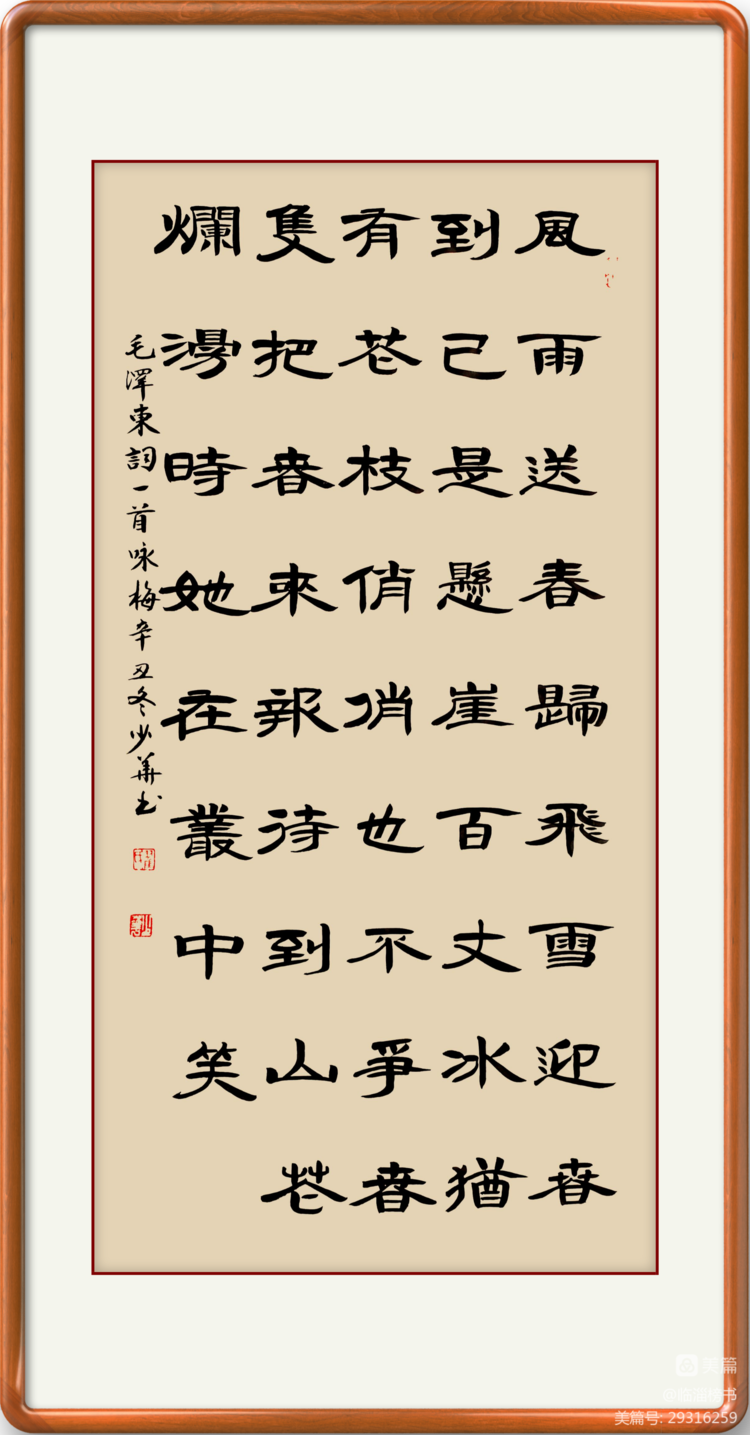 風雨送春歸飛雪迎春
到已是懸崖百丈冰猶
有花枝俏俏也不爭春
隻把春來報待到山花
爛漫時她在叢中笑
毛澤東詞一首咏梅辛丑冬少華书
美篇
美篇号: 29316259